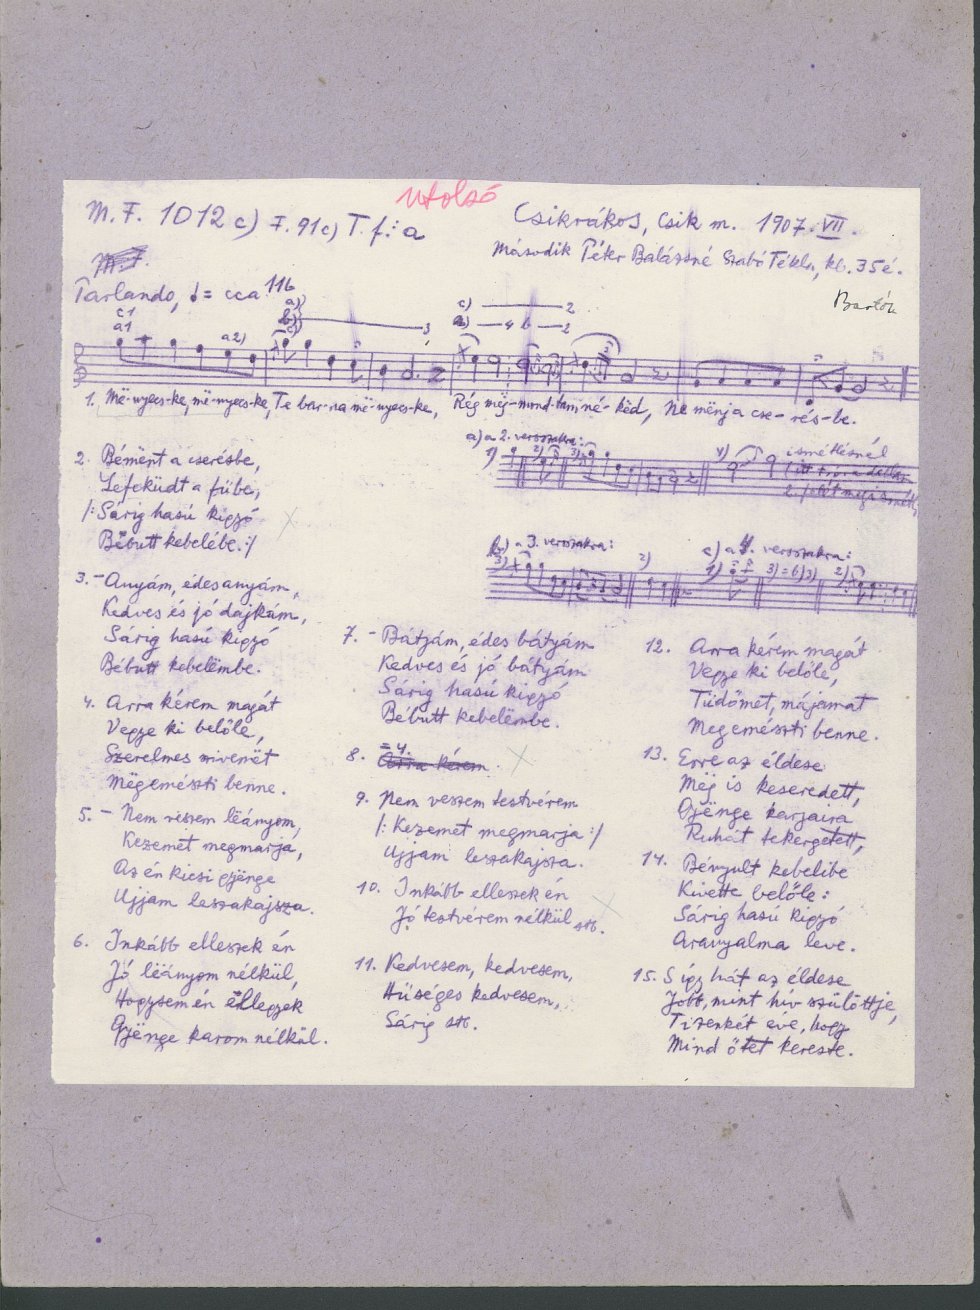 utolsó
M. F. 1012 c) F. 91c) T. f.: a
Csikrákos, Csik m. 1907. VII.
Második Pékr Balázsné Szabó Tékla, kb. 35 é.
M. F.
Bartók
Parlando, ♩= cca 116
1. Më-nyecs-ke, më-nyecs-ke, Te bar-na më-nyecs-ke, Rég mëg-mond-tam né-këd, Ne mënj a cse-rés-be.
a) a 2. versszakra:
ismétlésnél
b) a 3. versszakra:
c) a 4. versszakra:
2. Bémënt a cserésbe,
Lefeküdt a fübe,
/: Sárig hasú kigyó
Bébutt kebelébe. :/
3. – Anyám, édesanyám,
Kedves és jó dajkám,
Sárig hasú kigyó
Bébutt kebelëmbe.
4. Arra kérem magát
Vegye ki belőle,
Szerelmes szivemët
Mëgemészti benne.
5. – Nem veszem lëányom,
Kezemët megmarja,
Az én kicsi gyënge
Ujjam leszakajsza.
6. Inkább elleszek én
Jó lëányom nélkül,
Hogysem én ëllegyek
Gyënge karom nélkül.
7. – Bátyám, édes bátyám
Kedves és jó bátyám
Sárig hasú kigyó
Bébutt kebelëmbe.
8. = 4.
Arra kérem
9. Nem veszem testvérem
/: Kezemet megmarja :/
Ujjam leszakajsza.
10. Inkább elleszek én
Jó testvérem nélkül stb.
11. Kedvesem, kedvesem,
Hüséges kedvesem,
Sárig stb.
12. Arra kérem magát
Vegye ki belőle,
Tüdőmet, májamat
Megemészti benne.
13. Erre az éldese
Még is keseredett,
Gyënge karjaira
Ruhát tekergetett,
14. Bényult kebelibe
Kivette belőle:
Sárig hasú kigyó
Aranyalma leve.
15. S igy hát az éldese
Jobb, mint hiv szülöttje,
Tizenkét éve, hogy
Mind őtet kereste.